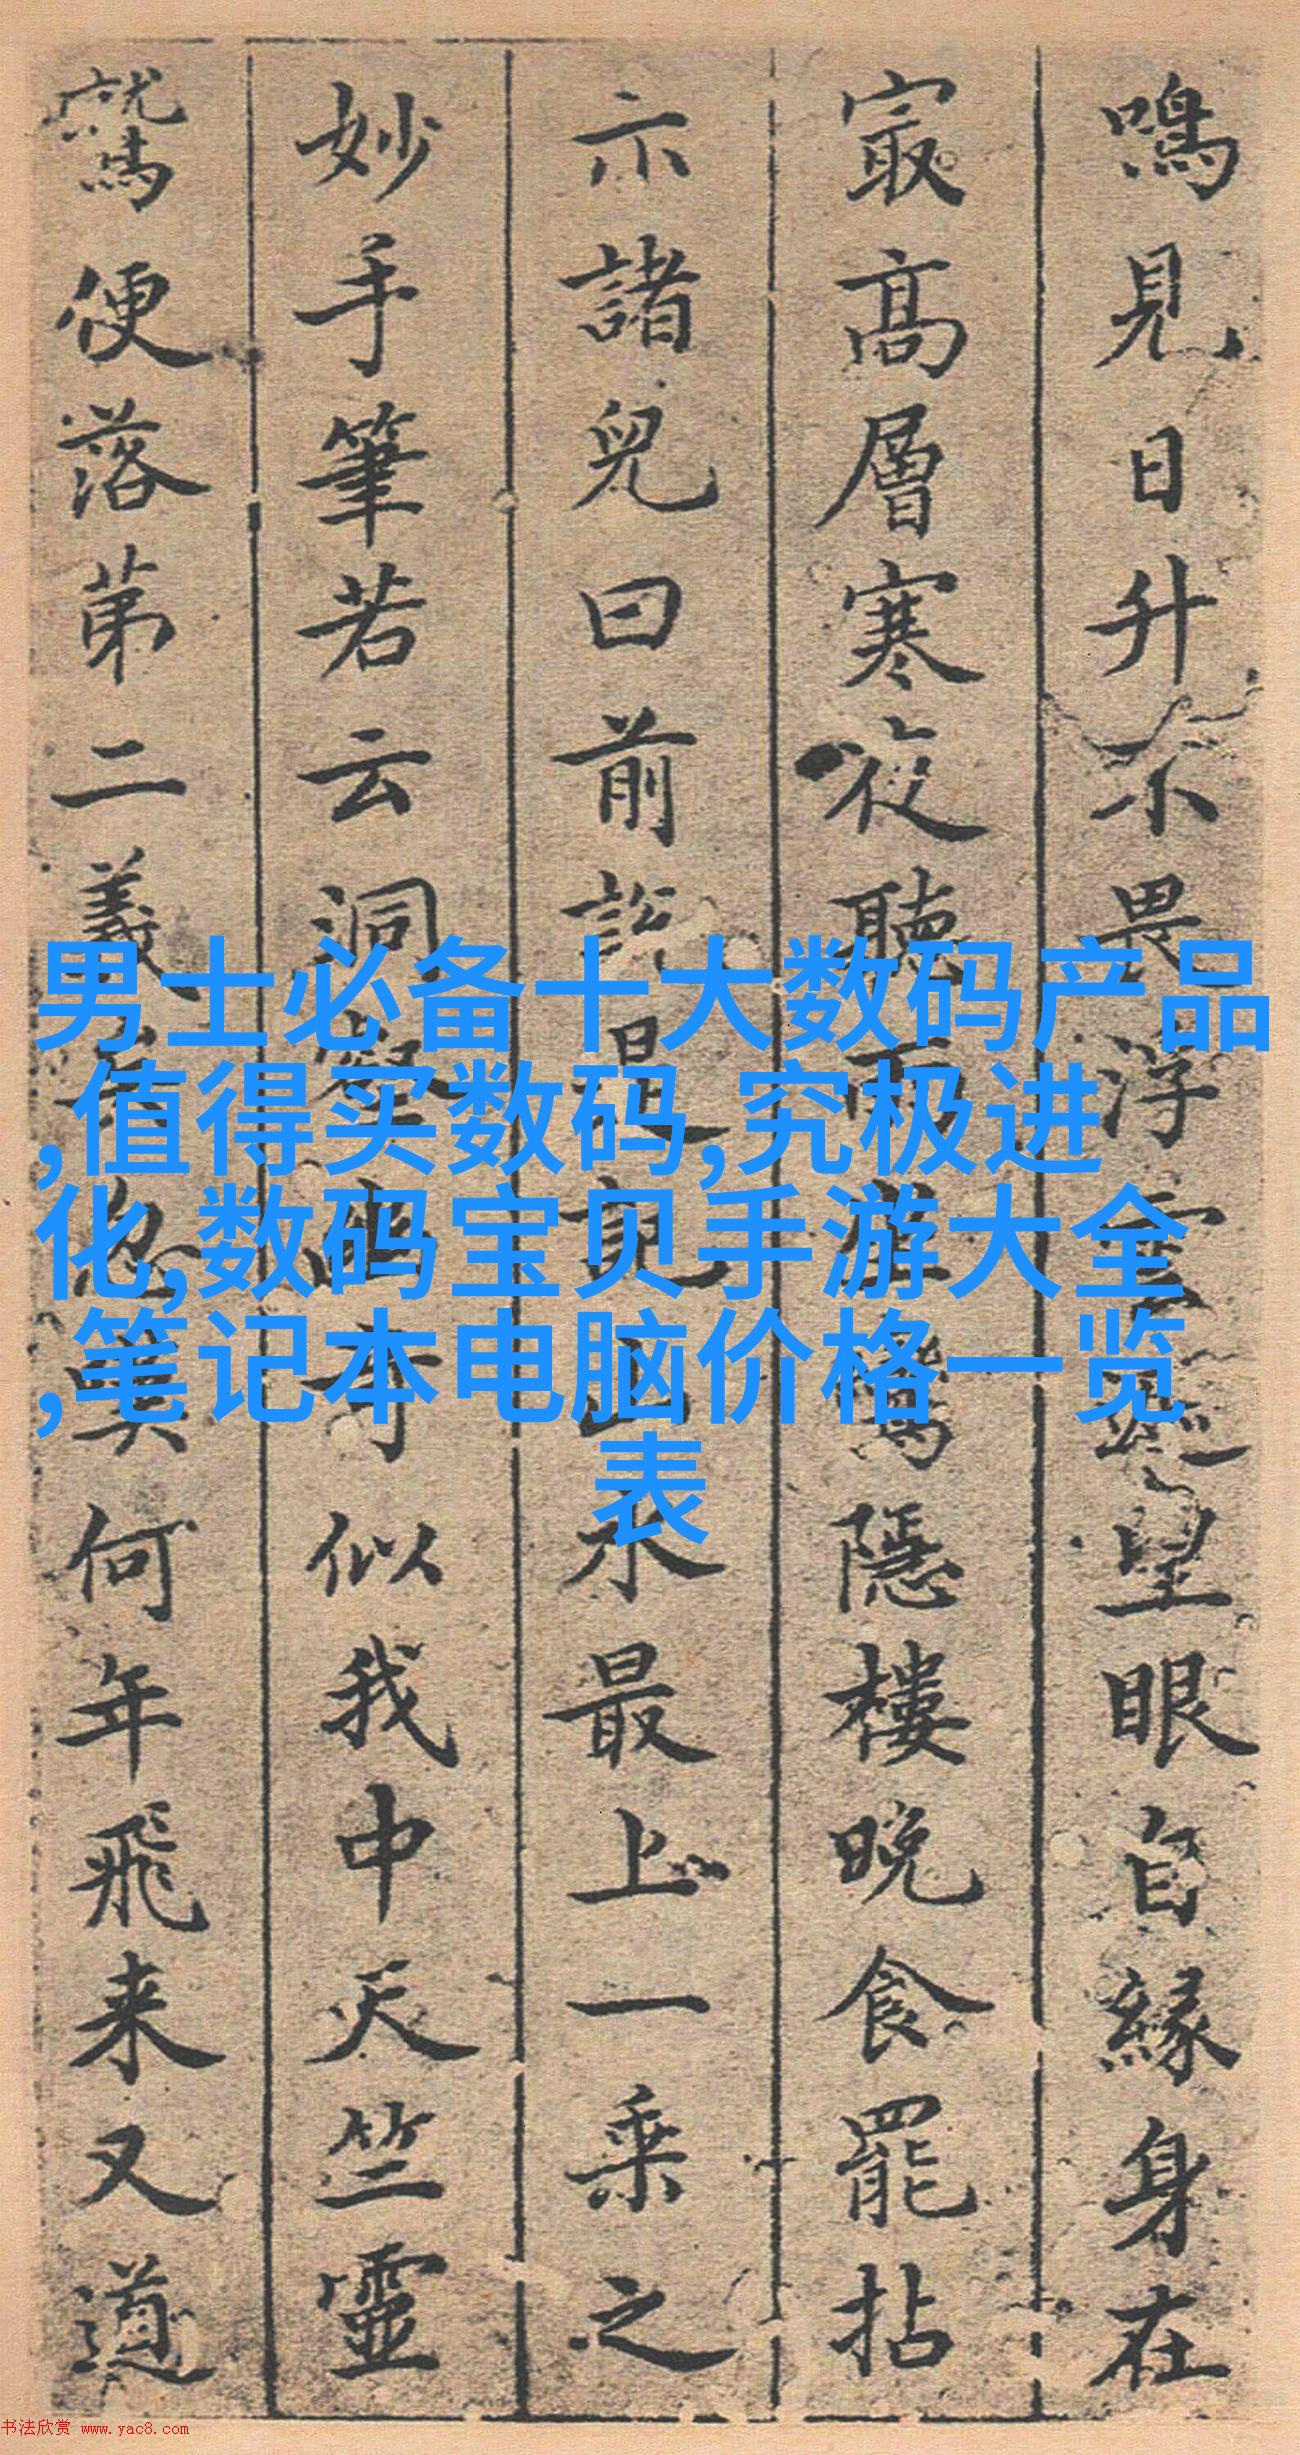 鳴見日升不畏浮雲遮望眼自緣身在
最高層寒夜聽雨崔嵩隱樓晚食罷拈
示諸兒曰前說是見山水最上一乘之
妙手筆若云洞壑山奇似我中天竺靈
鷲便落第二義矣忽奚何年飛来又道
男士必备十大数码产品
,值得买数码,究极进
化,数码宝贝手游大全
,笔记本电脑价格一览
表
书法欣赏 www.yac8.com